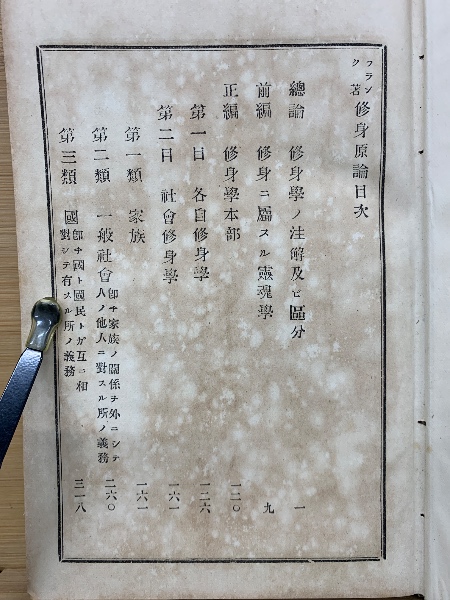 フランク著 修身原論目次
總論 修身學ノ注解及ヒ區分 一
前編 修身ニ屬スル靈魂學 九
正編 修身學本部 一二〇
第一日 各自修身學 一二六
第二日 社會修身學 一六一
第一類 家族 一六一
第二類 一般社會 卽チ家族ノ關係ヲ外ニシテ人ノ他人ニ對スル所ノ義務 二六〇
第三類 國 卽チ國ト國民トガ互ニ相對シテ有スル所ノ義務 三一八